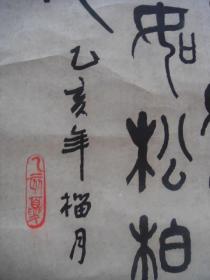 如松柏
乙亥年榴月